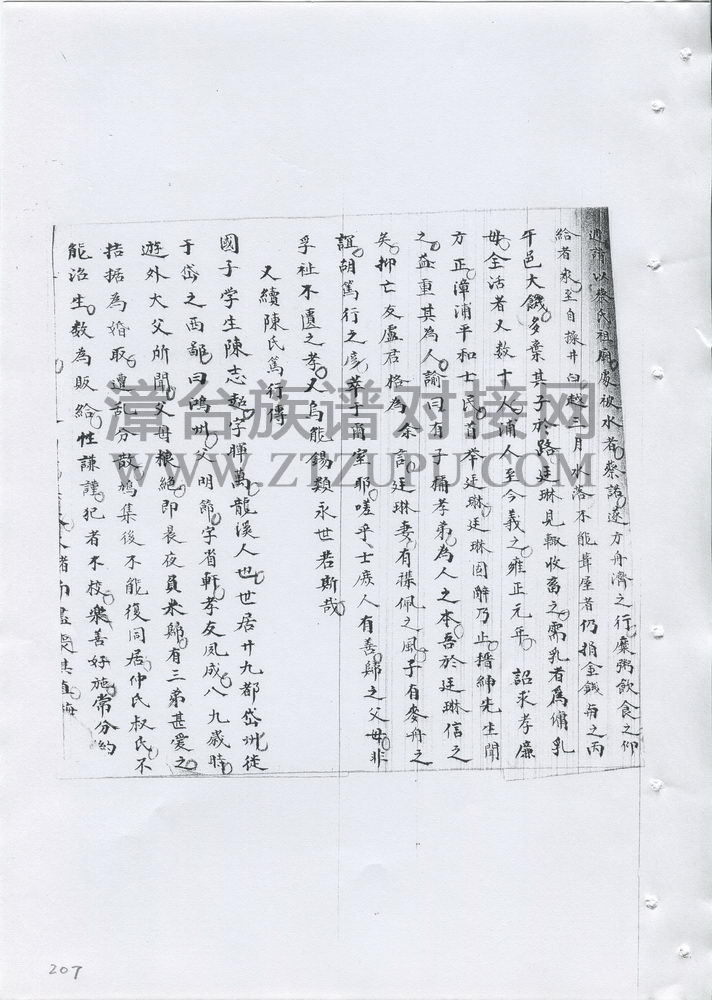 迎請以蔡氏祖廟處被水者蔡諾遂方舟濟之行糜粥飲食之仰
給者衆至自操井臼越三月水落不能葺屋者仍捐金錢與之丙
午邑大饑多棄其子於路廷琳見輒收畜之需乳者為傭乳
母全活者又數十人浦人至今義之雍正元年 詔求孝廉
方正漳浦平和士民首举廷琳廷琳固辭乃止搢紳先生聞
之益重其為人諭曰有子稱孝弟為人之本吾於廷琳信之
矣抑亡友盧君格為余言廷琳妻有襍佩之風子有麥舟之
誼胡篤行之彥萃于爾室耶嗟乎士庶人有善歸之父母非
孚祉不匱之孝又烏能錫類永世若斯哉
又續陳氏篤行傳
國子学生陳志韶字暉萬龍溪人也世居廿九都岱洲徒
于岱之西鄙曰鴻州父明節字省軒孝友夙成八九歲時
遊外大父所聞父母粮絕即晨夜負米歸有三弟甚愛之
拮据為婚取遭乱分散鳩集後不能復同居仲氏叔氏不
能治生数為賑給性謙謹犯者不校樂善好施常分約
者而盡
漳台族谱对接网
WWW.ZTZUPU.COM
207